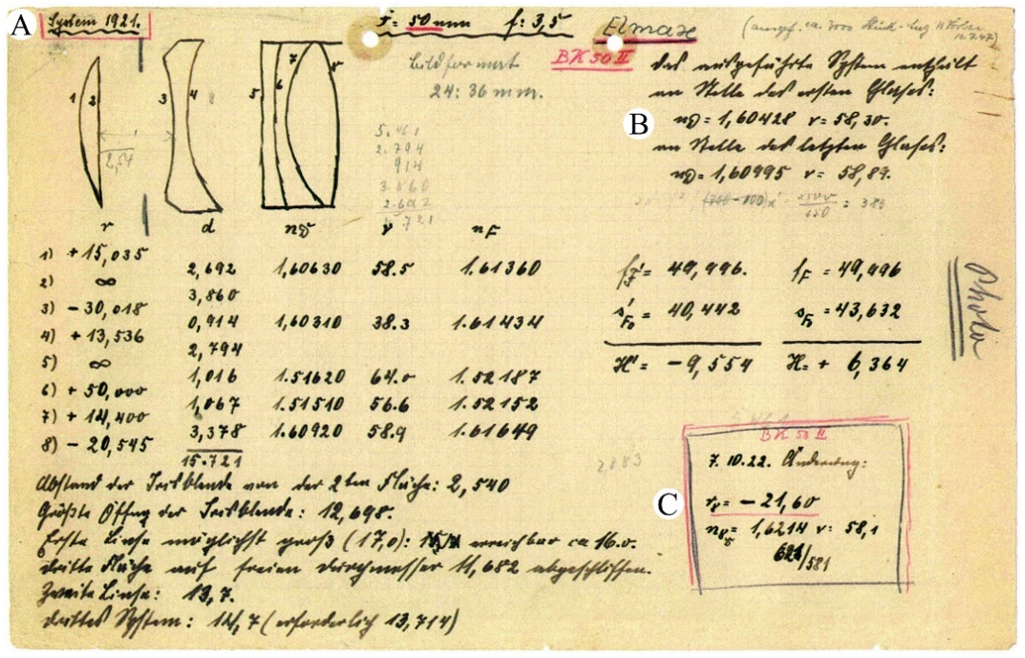 A
System 1921.
F = 50 mm f: 3,5
Elmax
(ausgef. ca. 3000 Stück
BK 50 II
Bildformat
24:36 mm.
das ausgeführte System enthält
an Stelle des ersten Glases:
B
nD = 1,60428 v = 58,30.
an Stelle des letzten Glases:
nD = 1,60995 v = 58,89.
1 2 3 4 5 6 7 8
2,54
5.461
2.794
914
3.860
2.692
15.721
= 380
r d nD v nF
1) + 15,035
2,692 1,60630 58.5 1.61360
2) ∞
3,860
3) - 30,018
0,914 1,60310 38.3 1.61434
4) + 13,536
2,794
5) ∞
1,016 1.51620 64.0 1.52187
6) + 50,000
1,067 1.51510 56.6 1.52152
7) + 14,400
3,378 1.60920 58.9 1.61649
8) - 20,545
15.721
fD' = 49,996. fF = 49,996
s'F0 = 40,442 sF0 = 43,632
H' = - 9,554 H = + 6,364
Photo
2083
BK 50 II
7.10.22. Änderung:
C
r8 = - 21,60
nD5 = 1,6214 v = 58,1
621/581
Abstand der Irisblende von der 2ten Fläche: 2,540
Größte Öffng der Irisblende: 12,698.
Erste Linse möglichst groß (17,0): erreichbar ca 16.0.
dritte Fläche auf freien Durchmesser 11,682 abgeschliffen.
Zweite Linse: 13,7.
drittes System: 14,7 (erforderlich 13,714)